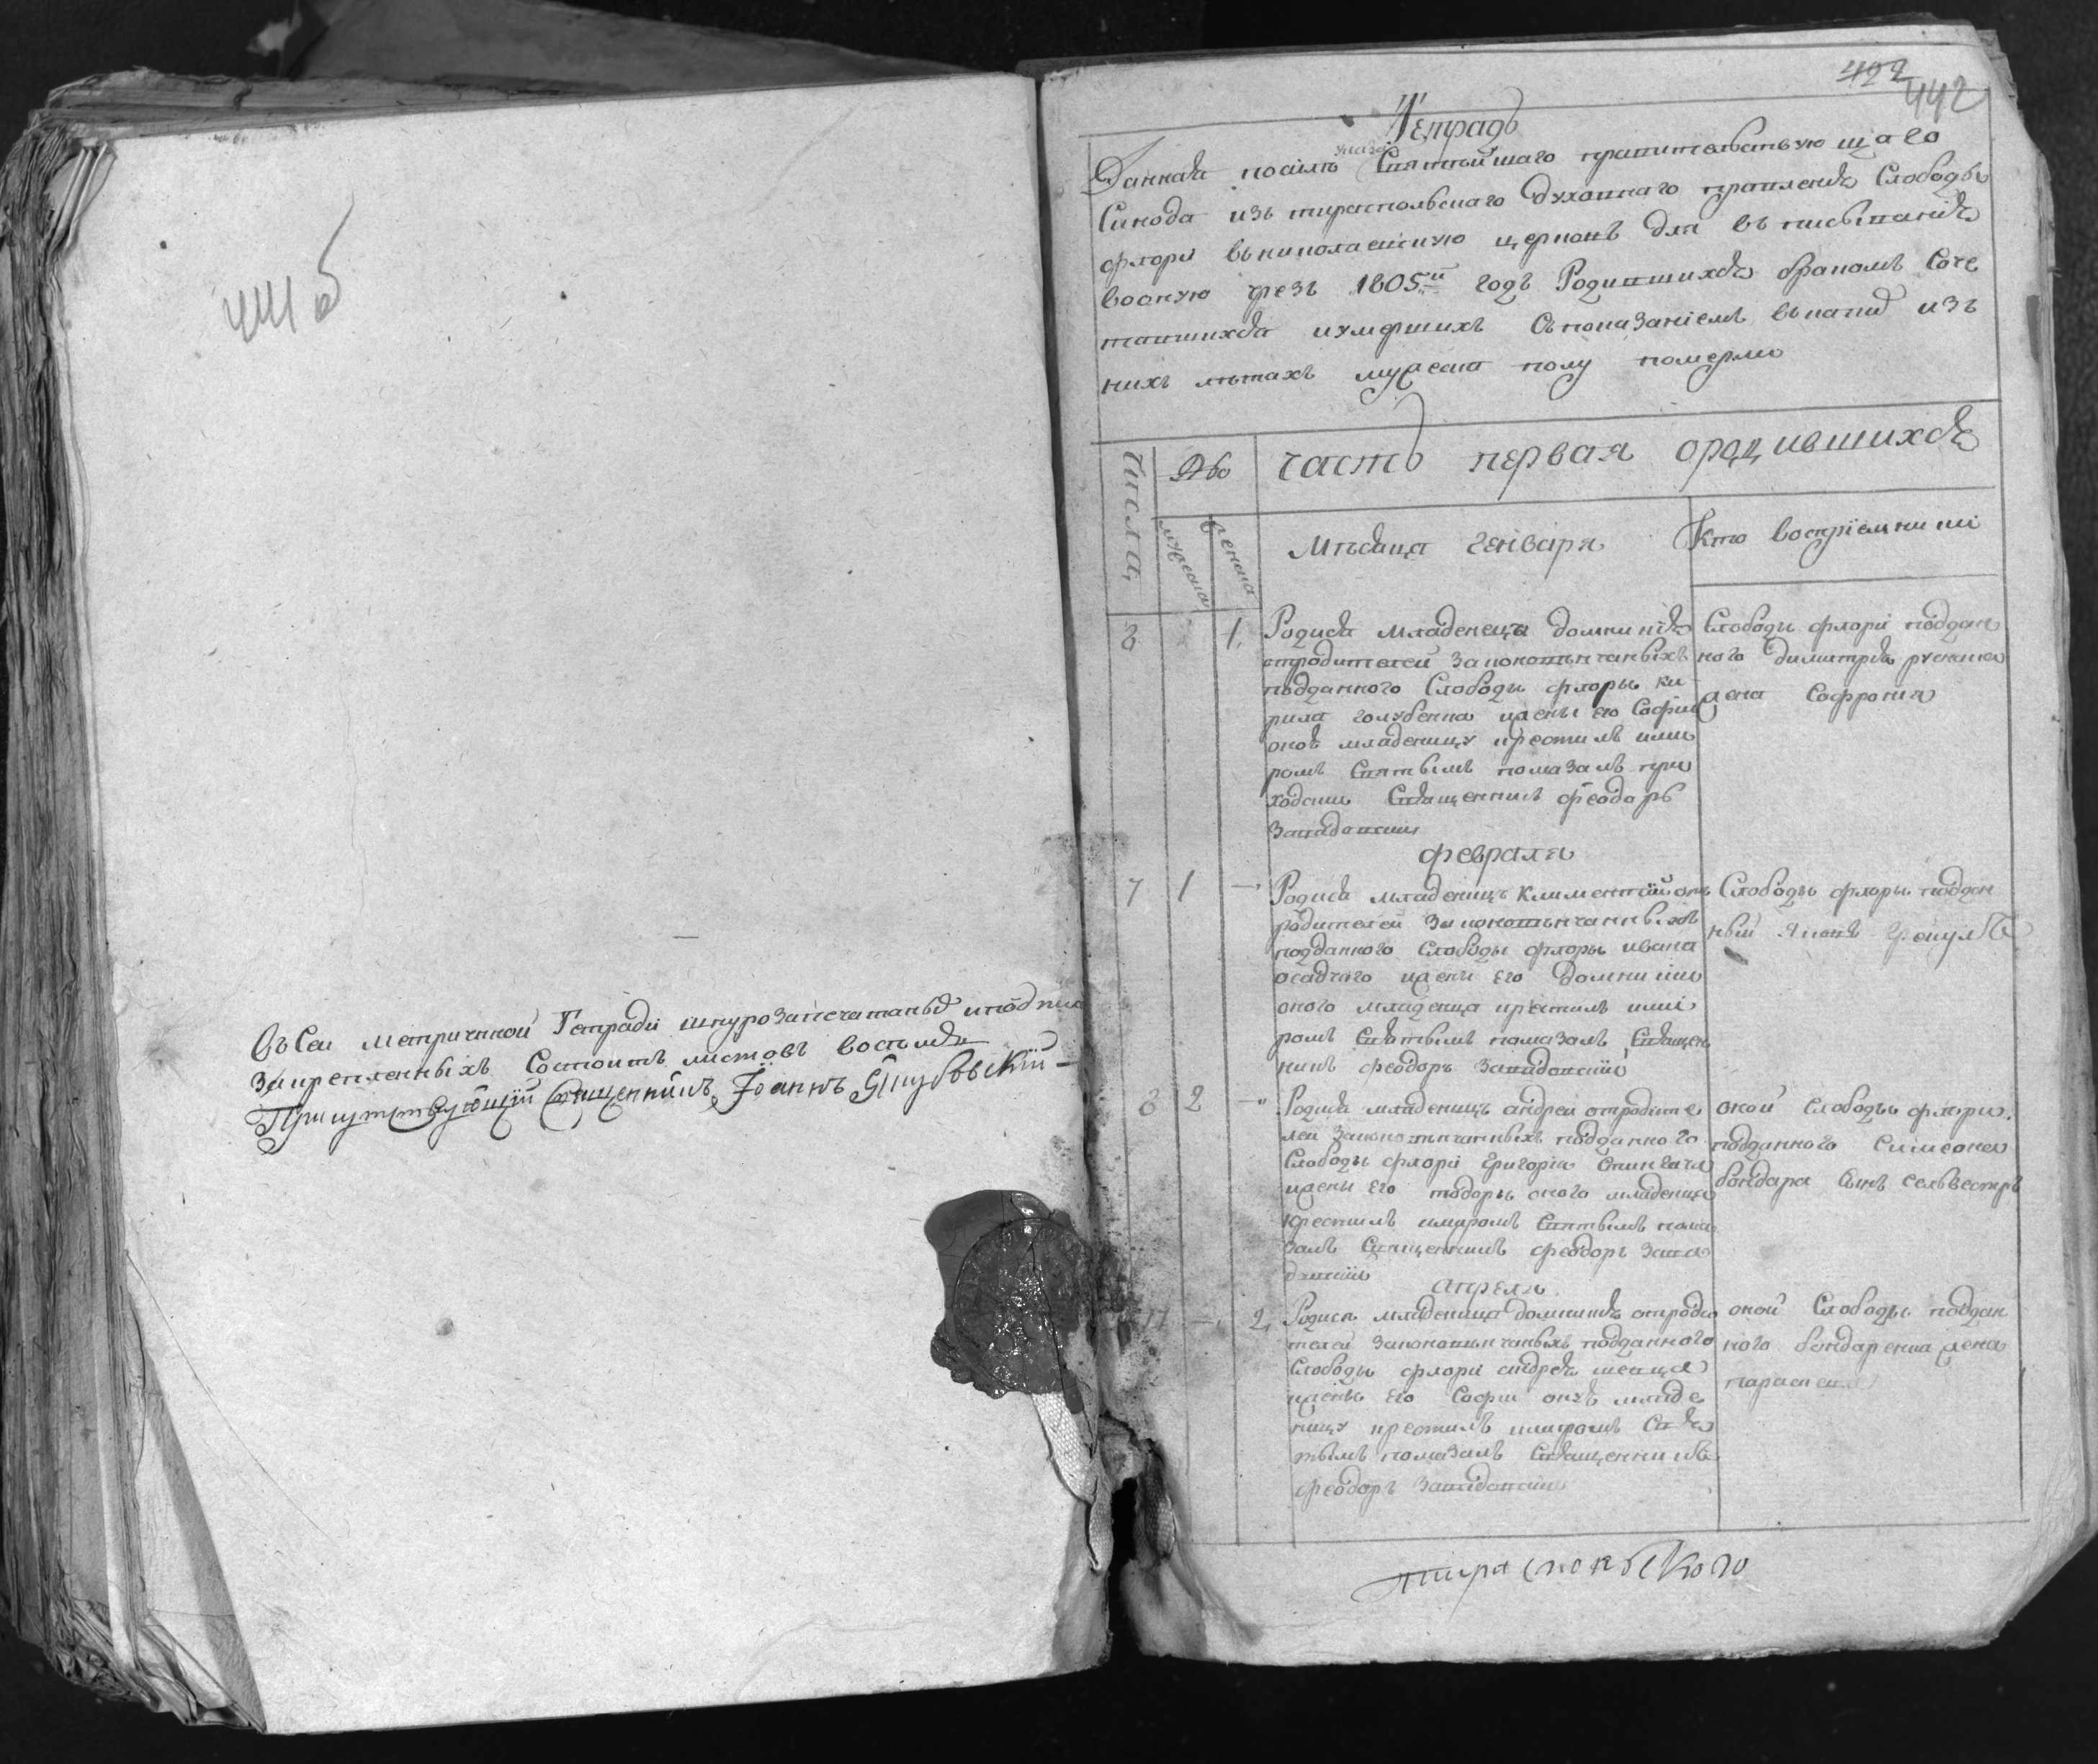 441 б
Въ сеи метричнной Тетради шнурозапечатаныѣ и подпис
закрепленныхъ Состоитъ листовъ восѣмь
Присутствующій Священникъ Іоаннъ
422
442
Тетрадь
указа
Данная посилѣ Святѣйшаго правителствующаго
Синода изъ тираспольского Духовнаго правленія Слободы
флори въ николаевскую церковь для въписыванія
вооную чрезъ 1805й годъ Родившихся бракомъ Соче
тавшихся иумершихъ Съ показаніемъ въ каких изъ
нихъ лѣтахъ мужеска полу померли
Числа
часть первая ородившихся
мужеска
женска
Мѣсяца генваря
Кто воспріемники
8
1.
Родися младенеца домникія
отродителей законовѣнчаныхъ
подданного Слободы флоры ки
рила голубенка жены его Софии
оноѣ младеницу крестилъ ими
ромъ Святымъ помазалъ при
ходски Священникъ феодоръ
Слободы флори поддан
ного димитрія руснака
жена Софрония
февраля
7
1
—
Родися младеницъ климентій отъ
родителей законовѣнчанныхъ
подданного Слободы флоры ивана
осадчого жены его Домникии
оного младенца крестилъ имі
ромъ Святымъ помазалъ Священ
никъ феодоръ
Слободы флоры поддан
ный
8
2
—
Родися младеницъ андреи отродите
леи законовѣнчаныхъ подданного
Слободы флори григория
жены его тодоры оного младенца
крестилъ имиромъ Святымъ пома
залъ Священникъ феодоръ
оной слободы флори
подданного Симеона
бондара Сынъ Селвестръ
апреля
11
—
2
Родися младеница домникія отроди
телей законовѣнчаныхъ подданного
Слободы флори андрея шевца
жены его Софии онуѣ младе
ницу крестилъ имиромъ Свя
тымъ помазалъ Священникъ
феодоръ
оной Слободы поддан
ного бондаренка жена
параскева
тираспольского